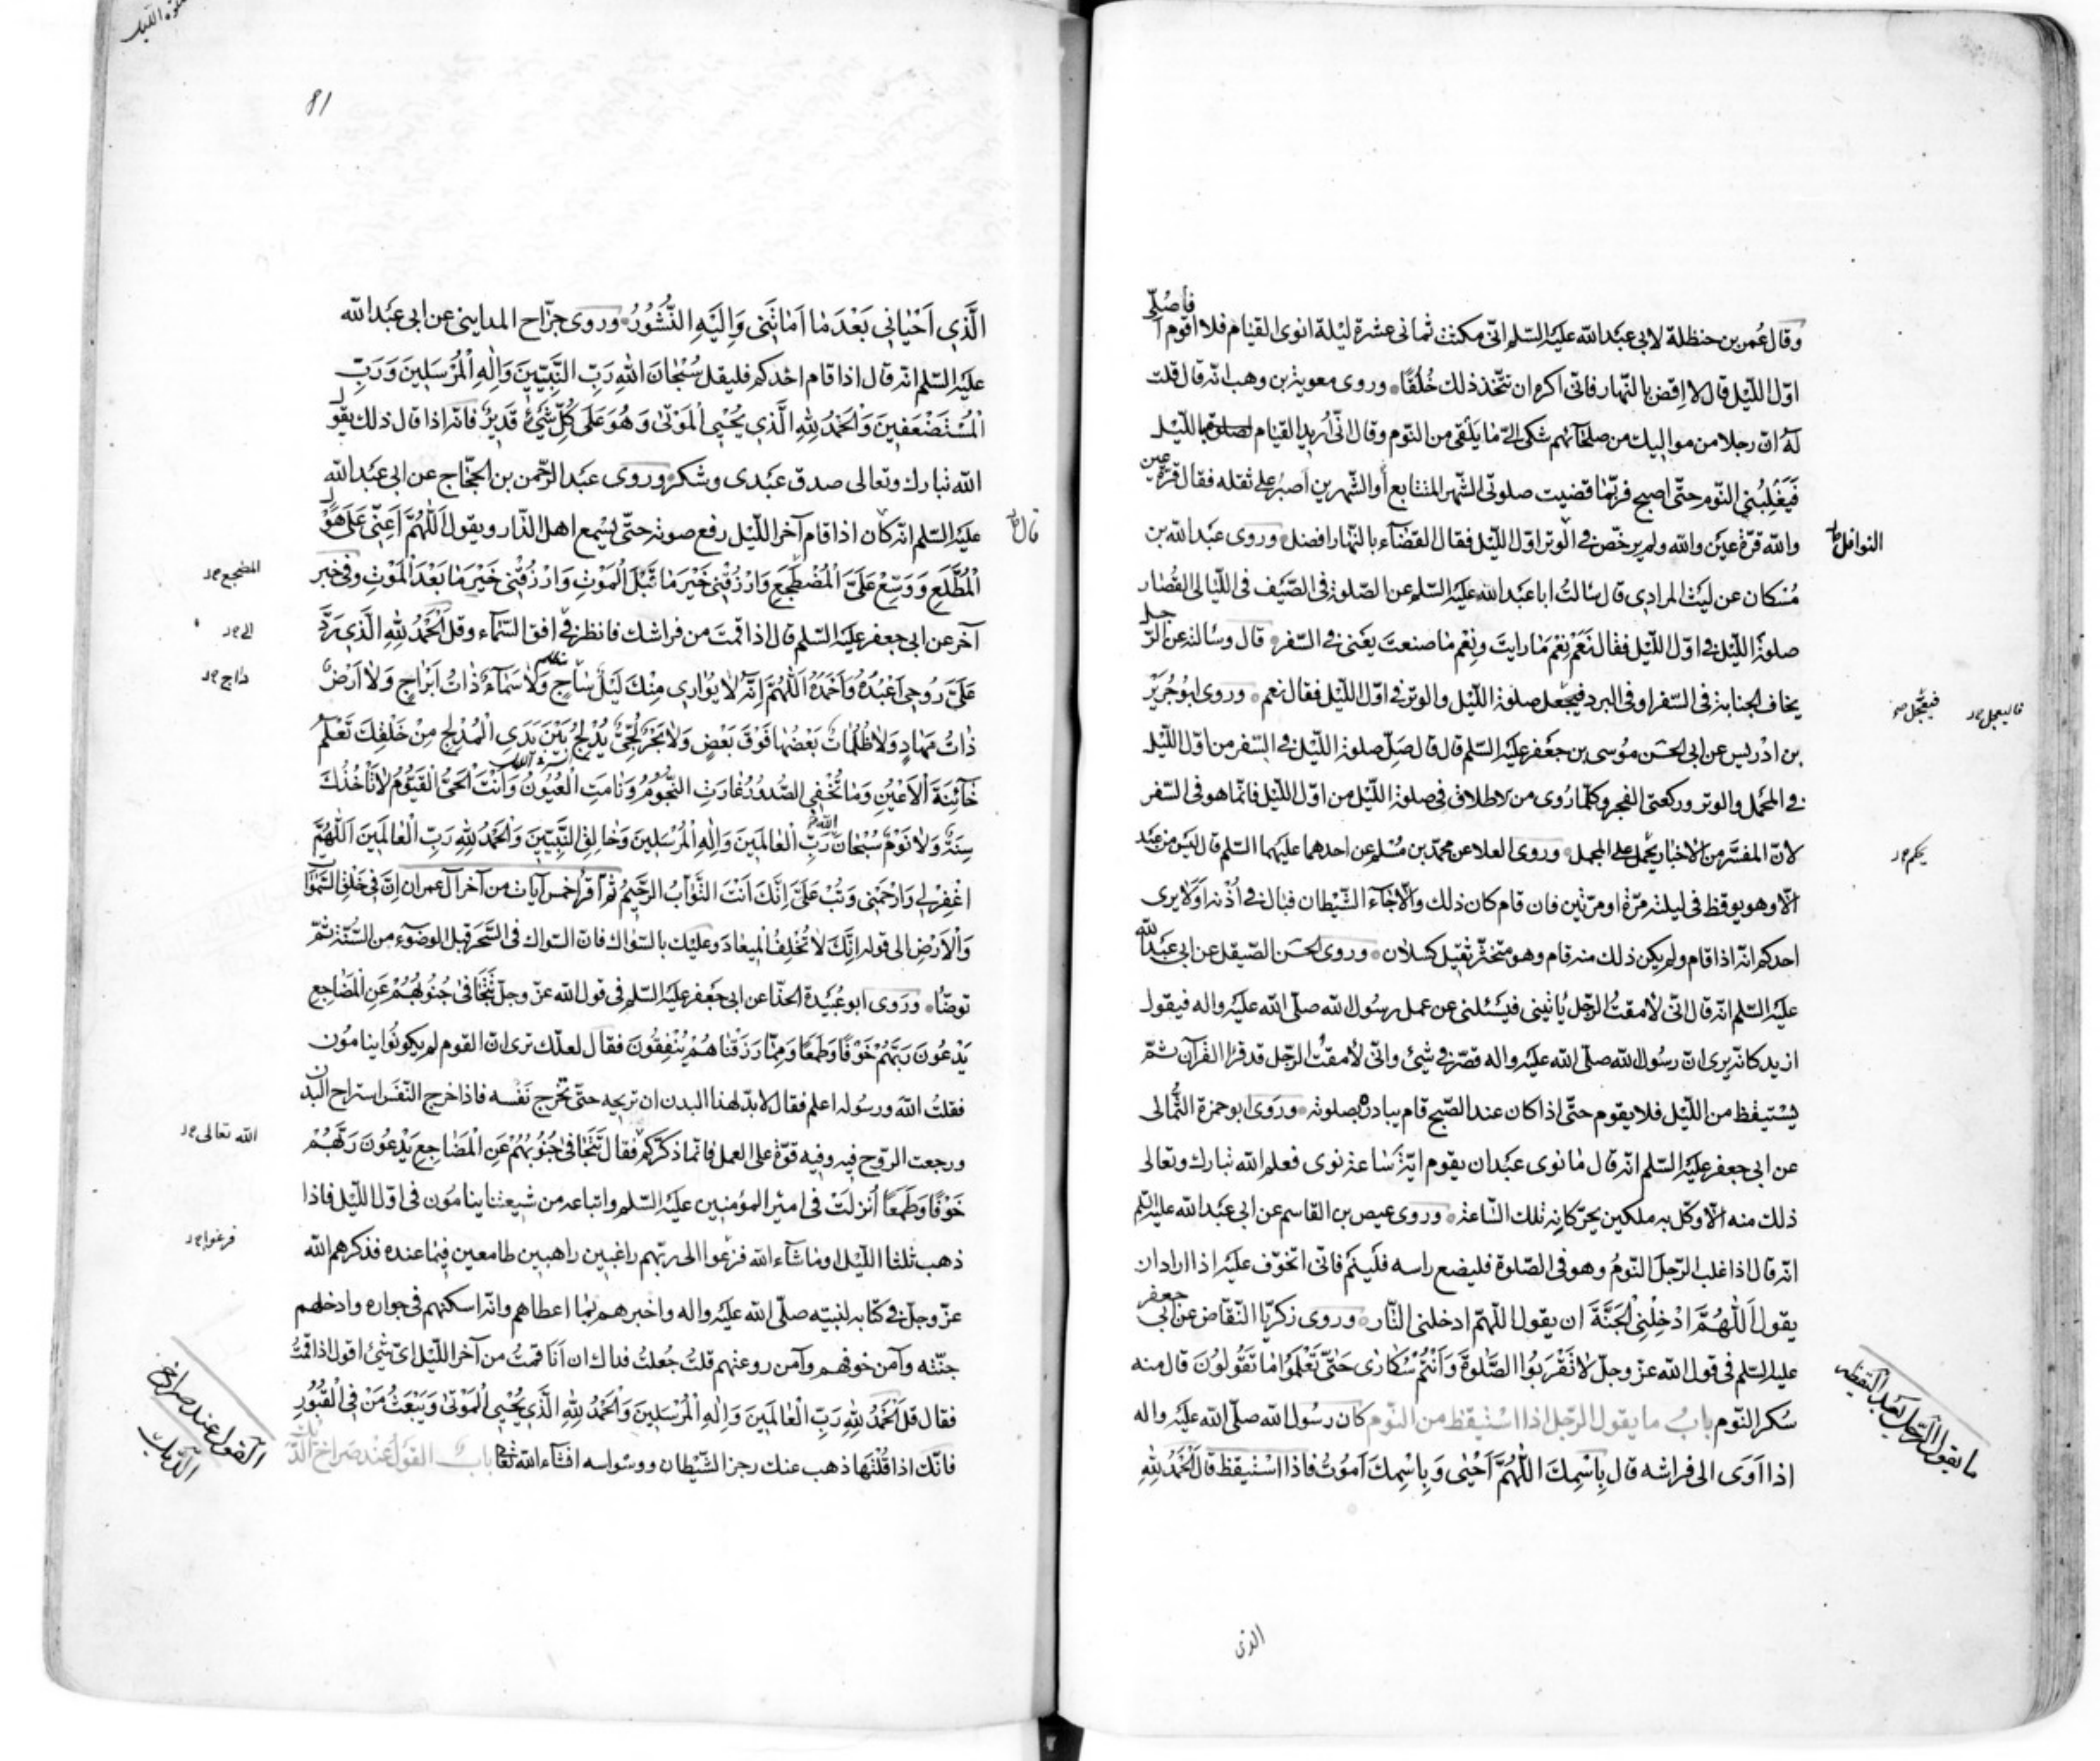 فأصلّى
وقال عُمر بن حنظلة لابى عبد الله عليه السّلم انّى مكثت ثمانى عشرة ليلة انوى القيام فلا اقوم آ
اوّل اللّيل قال لا اِقضِ بالنّهار فانّى اكره ان تتّخذ ذلك خُلُقًا وروى معوية بن وهب انّه قال قلت
له انّ رجلا من مواليك من صلحائهم شكى الىّ ما يلقى من النّوم وقال انّى اُريد القيام لصلوة باللّيل
فَيَغْلِبُنى النّوم حتّى اصبح فربّما قضيت صلوتى الشّهر المتتابع أو الشّهرين اَصبرُ على ثقله فقال قرّة عين
والله قرّة عين والله ولم يرخّص فى الوتر اوّل اللّيل فقال القضآء بالنّهار افضل وروى عبد الله بن
النوافل
مُسكان عن ليث المرادى قال سالتُ ابا عبد الله عليه السّلم عن الصّلوة فى الصّيف فى اللّيالى القصار
صلوة اللّيل فى اوّل اللّيل فقال نَعَمْ نِعْمَ ما رايتَ ونِعْم ما صنعتَ يعنى فى السّفر قال وسالته عن الرّجل
يخاف الجنابة فى السّفر او فى البرد فيجعل صلوة اللّيل والوتر فى اوّل اللّيل فقال نعم وروى ابو جُرَيْر
فيعجّل
فاليعجل
بن ادريس عن ابى الحسَن مُوسى بن جعَفر عليه السّلم قال قال صَلِّ صلوة اللّيل فى السّفر من اوّل اللّيل
فى المحمل والوتر وركعتى الفجر وكلّما رُوى من الاطلاق فى صلوة اللّيل من اوّل اللّيل فانّما هو فى السّفر
لانّ المفسّر من الاخبار يحمل على المجمل وروى العلا عن محمّد بن مُسْلم عن احدهما عليهما السّلم قال ليَس من عبد
يحكم
الّا وهو يوقظ فى ليلته مرّة او مرّتين فان قام كان ذلك والّا جآءَ الشّيطان فبال فى اُذُنه اَوَلا يرى
احدكم انّه اذا قام ولم يكن ذلك منه قام وهو متخثّر ثقيل كسلان وروى الحسَن الصّيقل عن ابى عبد الله
عليه السّلم انّه قال انّى لأمقتُ الرّجل يأتينى فيَسْئلنى عن عمل رسُول الله صلّى الله عليه واله فيقول
ازيد كانّه يرى انّ رسُول الله صلّى الله عليه واله قصّر فى شئ وانّى لأمقتُ الرّجل قد قرأ القرآن ثمّ
يَسْتيقظ من اللّيل فلا يقوم حتّى اذا كان عند الصّبح قام يبادره بصلوته وروى ابو حمزة الثّمالى
عن ابى جعفر عليه السّلم انّه قال ما نوى عبَد ان يقوم ايّة سَاعة نوى فعلم الله تبارك وتعالى
ذلك منه الّا وكّل به ملكين يحرّكانه تلك السّاعة وروى عيص بن القاسم عن ابى عبَد الله عليه السّلم
انّه قال اذا غلب الرّجلَ النّومُ وهو فى الصّلوة فليضع راسه فلَينَم فانّى اتخوّف عليَه اذا اراد ان
يقول اَللّهُمَّ ادْخِلْنِى الْجَنَّةَ ان يقول اللّهمّ ادخلنى النّار وروى زكريّا النّقّاض عن ابى جعفر
عليه السّلم فى قول الله عزّ وجلّ لا تَقْرَبُوا الصَّلوةَ وَاَنْتُمْ سُكارى حَتّى تَعْلَمُوا ما تَقُولُونَ قال منه
سُكر النّوم بابُ ما يقول الرّجل اذا استيقظ من النّوم كان رسُول الله صلّى الله عليَه واله
ما يقول الرّجل بعد اليقظة
اذا اَوَى الى فراشه قال بِاسْمِكَ اللّهُمَّ اَحْيى وَبِاسْمِكَ اَموُتُ فاذا اسْتيقظ قال اَلْحَمْدُ لِلّهِ
الذى
81
الَّذِى اَحْيانِى بَعْدَ ما اَماتَنِى وَاِلَيْهِ النُّشُورُ وروى جرّاح المداينى عن ابى عبد الله
عليه السّلم انّه قال اذا قام احدكم فليقل سُبْحانَ اللهِ رَبِّ النَّبِيِّينَ وَاِلهِ الْمُرْسَلِينَ وَرَبِّ
الْمُسْتَضْعَفِينَ وَالْحَمْدُ لِلّهِ الَّذِى يُحْيِى الْمَوْتى وَهُوَ عَلى كُلِّ شَيْءٍ قَدِيرٌ فانّه اذا قال ذلك يقول
الله تبارك وتعالى صدق عَبْدى وشكر وروى عبد الرّحمن بن الحجّاج عن ابى عبد الله
عليَه السّلم انّه كان اذا قام آخر اللّيل رفع صوته حتّى يسْمع اهل الدّار ويقول اَللّهُمَّ اَعِنِّى عَلى هَوْل
قال
الْمُطَّلَعِ وَوَسِّعْ عَلَىَّ الْمُضْطَجَعَ وَارْزُقْنِى خَيْرَ ما قَبْلَ الْمَوْتِ وَارْزُقْنِى خَيْرَ ما بَعْدَ الْمَوْتِ وفى خبر
المضجع
آخر عن ابى جعفر عليه السّلم قال اذا قمتَ من فراشك فانظر فى افق السّمآء وقل اَلْحَمْدُ لِلّهِ الَّذِى رَدَّ
الى
عَلَىَّ رُوحِى اَعْبُدُهُ وَاَحْمَدُهُ اَللّهُمَّ اِنَّهُ لا يُوارِى مِنْكَ لَيْلٌ ساجٍ وَلا سَمآءٌ ذاتُ اَبْراجٍ وَلا اَرْضٌ
داج
ذاتُ مِهادٍ وَلا ظُلُماتٌ بَعْضُها فَوْقَ بَعْضٍ وَلا بَحْرٌ لُجِّىٌّ يُدْلِجُ بَيْنَ يَدَىِ الْمُدْلِجِ مِنْ خَلْقِكَ تَعْلَمُ
خآئِنَةَ الْاَعْيُنِ وَما تُخْفِى الصُّدُورُ غارَتِ النُّجُومُ وَنامَتِ الْعُيُونُ وَاَنْتَ الْحَىُّ الْقَيُّومُ لا تَأْخُذُكَ
سِنَةٌ وَلا نَوْمٌ سُبْحانَ الله رَبِّ الْعالَمِينَ وَاِلهِ الْمُرْسَلِينَ وَخالِقِ النَّبِيِّينَ وَالْحَمْدُ لِلّهِ رَبِّ الْعالَمِينَ اَللّهُمَّ
اغْفِرْ لِى وَارْحَمْنِى وَتُبْ عَلَىَّ اِنَّكَ اَنْتَ التَّوّابُ الرَّحِيمُ ثم اقرأ خمس آيات من آخر آل عمران اِنَّ فِى خَلْقِ السَّمواتِ
وَالْاَرْضِ الى قوله اِنَّكَ لا تُخْلِفُ الْمِيعادَ وعليَك بالسّواك فانّ السّواك فى السَّحَر قبل الوضوء من السّنّة ثمّ
توضّأ وروى ابو عُبَيْدة الحذّا عن ابى جَعفر عليَه السّلم فى قول الله عزّ وجلّ تَتَجافى جُنُوبُهُمْ عَنِ الْمَضاجِعِ
يَدْعُونَ رَبَّهُمْ خَوْفًا وَطَمَعًا وَمِمّا رَزَقْناهُمْ يُنْفِقُونَ فقال لعلّك ترى انّ القوم لم يكونُوا ينامُون
فقلتُ الله ورسُوله اعلم فقال لابدّ لهذا البدن ان تريحه حتّى تخْرج نَفسه فاذا خرج النّفَس استراح البدن
ورجعت الرّوح فيه وفيه قوّة على العمل فانّما ذكركم فقال تَتَجافى جُنُوبُهُمْ عَنِ الْمَضاجِعِ يَدْعُونَ رَبَّهُمْ
الله تعالى
خَوْفًا وَطَمَعًا اُنزلَتْ فى اميْر المؤمنين عليَه السّلم واتباعه من شيعتنا ينامُون فى اوّل اللّيل فاذا
ذهب ثلثا اللّيل او ما شآء الله فزعوا الى ربّهم راغبين راهبين طامعين فيما عنده فذكرهم الله
فرغوا
عزّ وجلّ فى كتابه لنبيّه صلّى الله عليَه واله واخبرهم بما اعطاهم وانّه اسكنهم فى جواره وادخلهم
جنّته وآمن خوفهم وآمن روعتهم قلتُ جُعلتُ فداك ان اَنَا قمتُ من آخر اللّيل اىّ شئ اقول اذا قمتُ
فقال قل اَلْحَمْدُ لِلّهِ رَبِّ الْعالَمِينَ وَاِلهِ الْمُرْسَلِينَ وَالْحَمْدُ لِلّهِ الَّذِى يُحْيِى الْمَوْتى وَيَبْعَثُ مَنْ فِى الْقُبُورِ
فانّك اذا قُلْتَها ذهب عنك رجز الشّيْطان ووسْواسه انشآء الله تعا باب القول عند صراخ الدّيك
القول عند صراخ
الدّيك